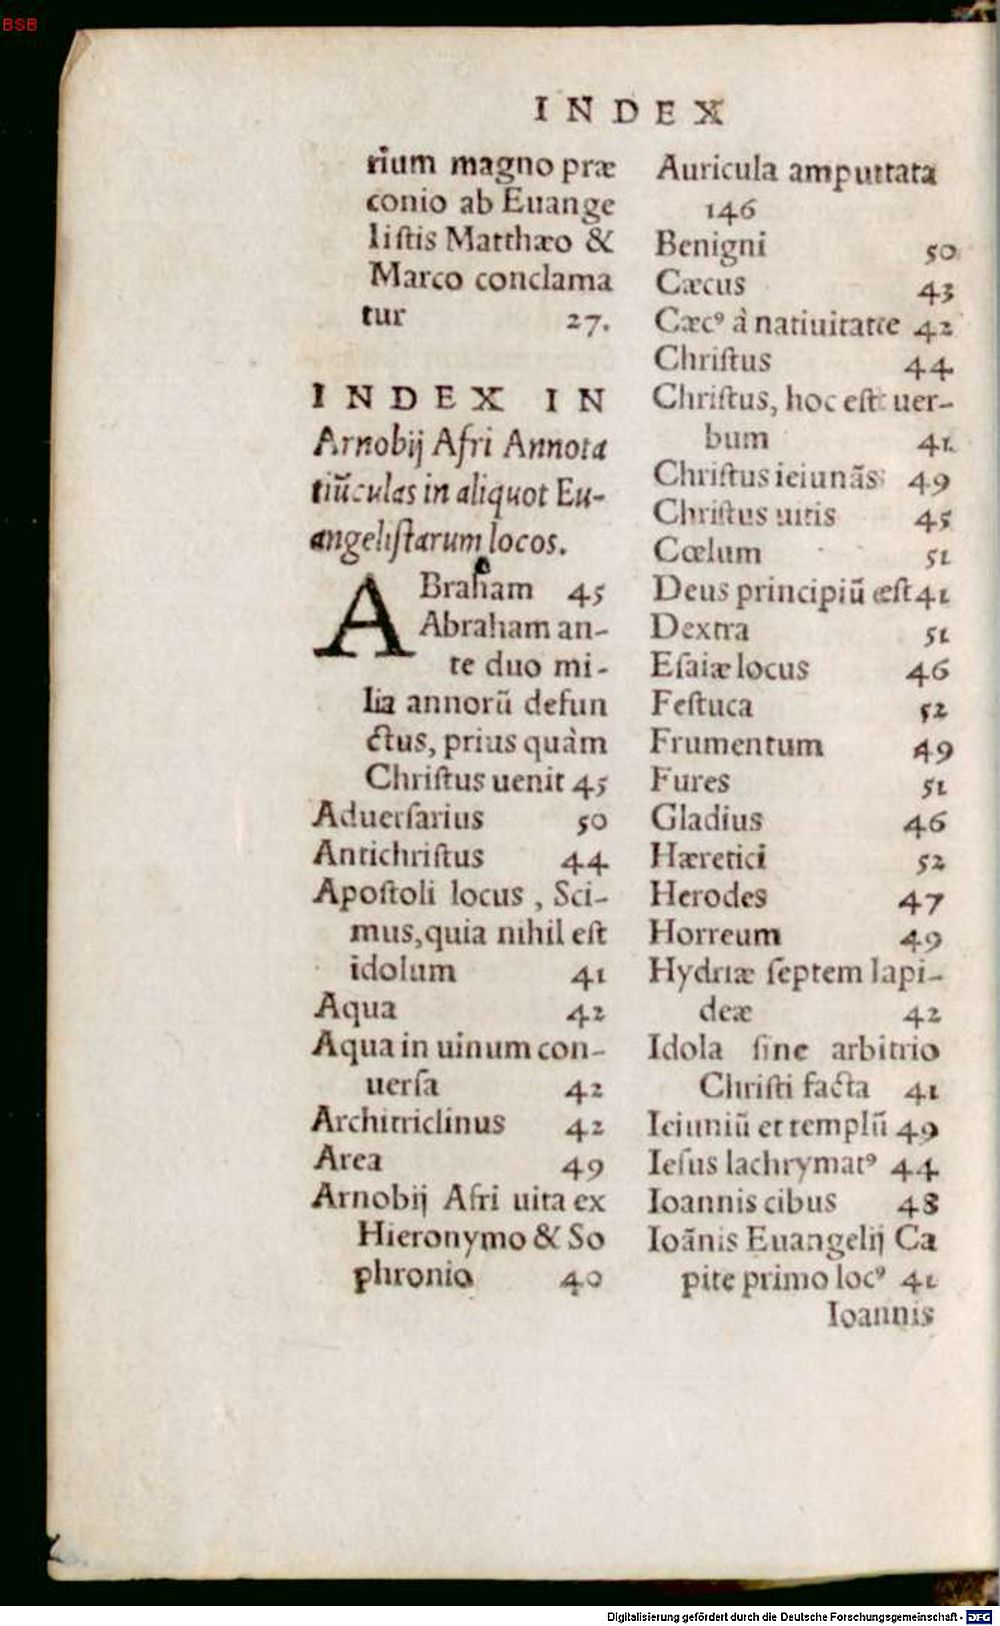 BSB
INDEX
rium magno præ
conio ab Euange
liſtis Matthæo &
Marco conclama
tur 27.
INDEX IN
Arnobij Afri Annota
tiũculas in aliquot Eu-
angeliſtarum locos.
ABraham 45
Abraham an-
te duo mi-
lia annorũ defun
ctus, prius quàm
Chriſtus uenit 45
Aduerſarius 50
Antichriſtus 44
Apoſtoli locus, Sci-
mus, quia nihil eſt
idolum 41
Aqua 42
Aqua in uinum con-
uerſa 42
Architriclinus 42
Area 49
Arnobij Afri uita ex
Hieronymo & So
phronio 40
Auricula amputtata
146
Benigni 50
Cæcus 43
Cæcꝰ à natiuitatte 42
Chriſtus 44
Chriſtus, hoc eſt uer-
bum 41
Chriſtus ieiunãs 49
Chriſtus uitis 45
Cœlum 51
Deus principiũ æſt 41
Dextra 51
Eſaiæ locus 46
Feſtuca 52
Frumentum 49
Fures 51
Gladius 46
Hæretici 52
Herodes 47
Horreum 49
Hydriæ ſeptem lapi-
deæ 42
Idola ſine arbitrio
Chriſti facta 41
Ieiuniũ et templũ 49
Ieſus lachrymatꝰ 44
Ioannis cibus 48
Ioãnis Euangelij Ca
pite primo locꝰ 41
Ioannis
Digitalisierung gefördert durch die Deutsche Forschungsgemeinschaft - DFG